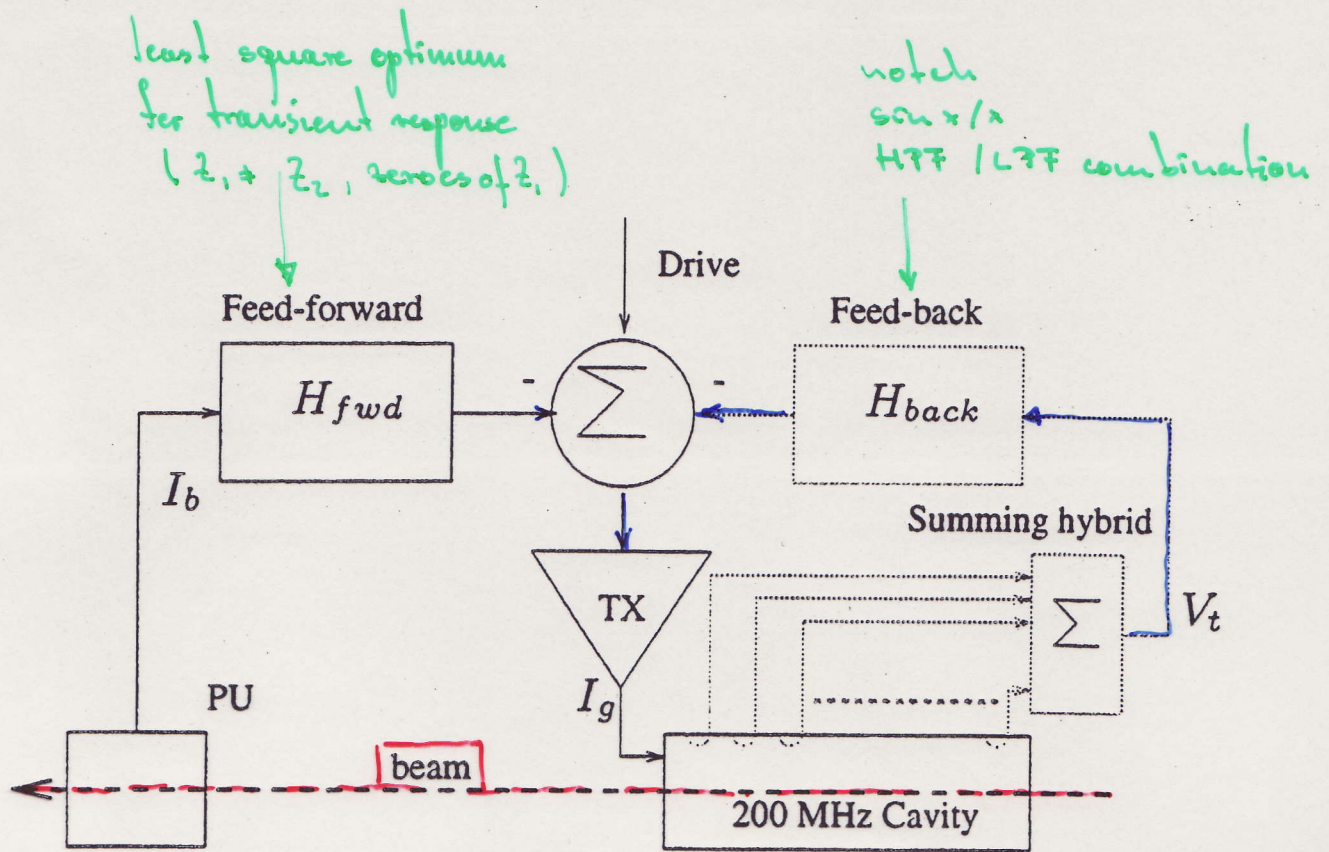 least square optimum
for transient response
(Z₁ * Z₂, zeroes of Z₁)
notch
sin x/x
HPF / LPF combination
Drive
Feed-forward
Feed-back
-
Σ
-
H_fwd
H_back
I_b
Summing hybrid
TX
Σ
V_t
PU
I_g
beam
200 MHz Cavity